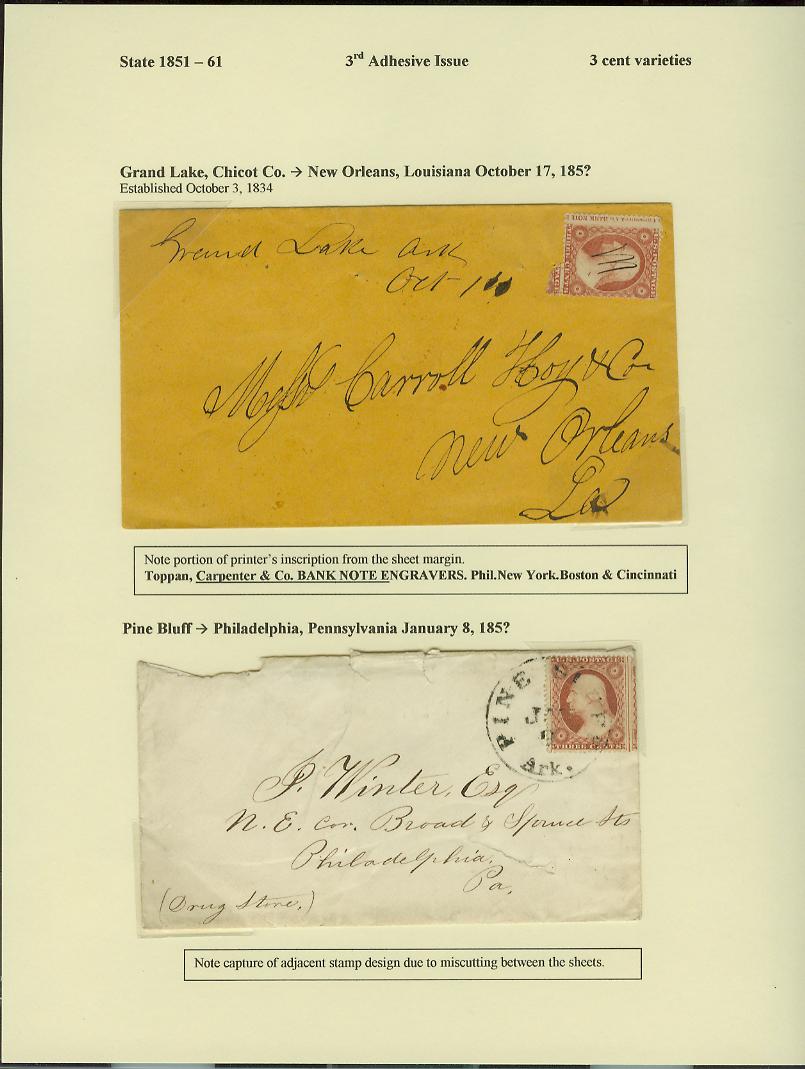 State 1851 – 61 3rd Adhesive Issue 3 cent varieties
Grand Lake, Chicot Co. → New Orleans, Louisiana October 17, 185?
Established October 3, 1834
Grand Lake Ark
Oct
Carroll Hoy & Co
New Orleans
La
Note portion of printer's inscription from the sheet margin.
Toppan, Carpenter & Co. BANK NOTE ENGRAVERS. Phil.New York.Boston & Cincinnati
Pine Bluff → Philadelphia, Pennsylvania January 8, 185?
U.S. POSTAGE
THREE CENTS
PINE
Ark.
P. Winter, Esq
N. E. cor. Broad & Spruce Sts
Philadelphia,
Pa.
(Drug Store.)
Note capture of adjacent stamp design due to miscutting between the sheets.